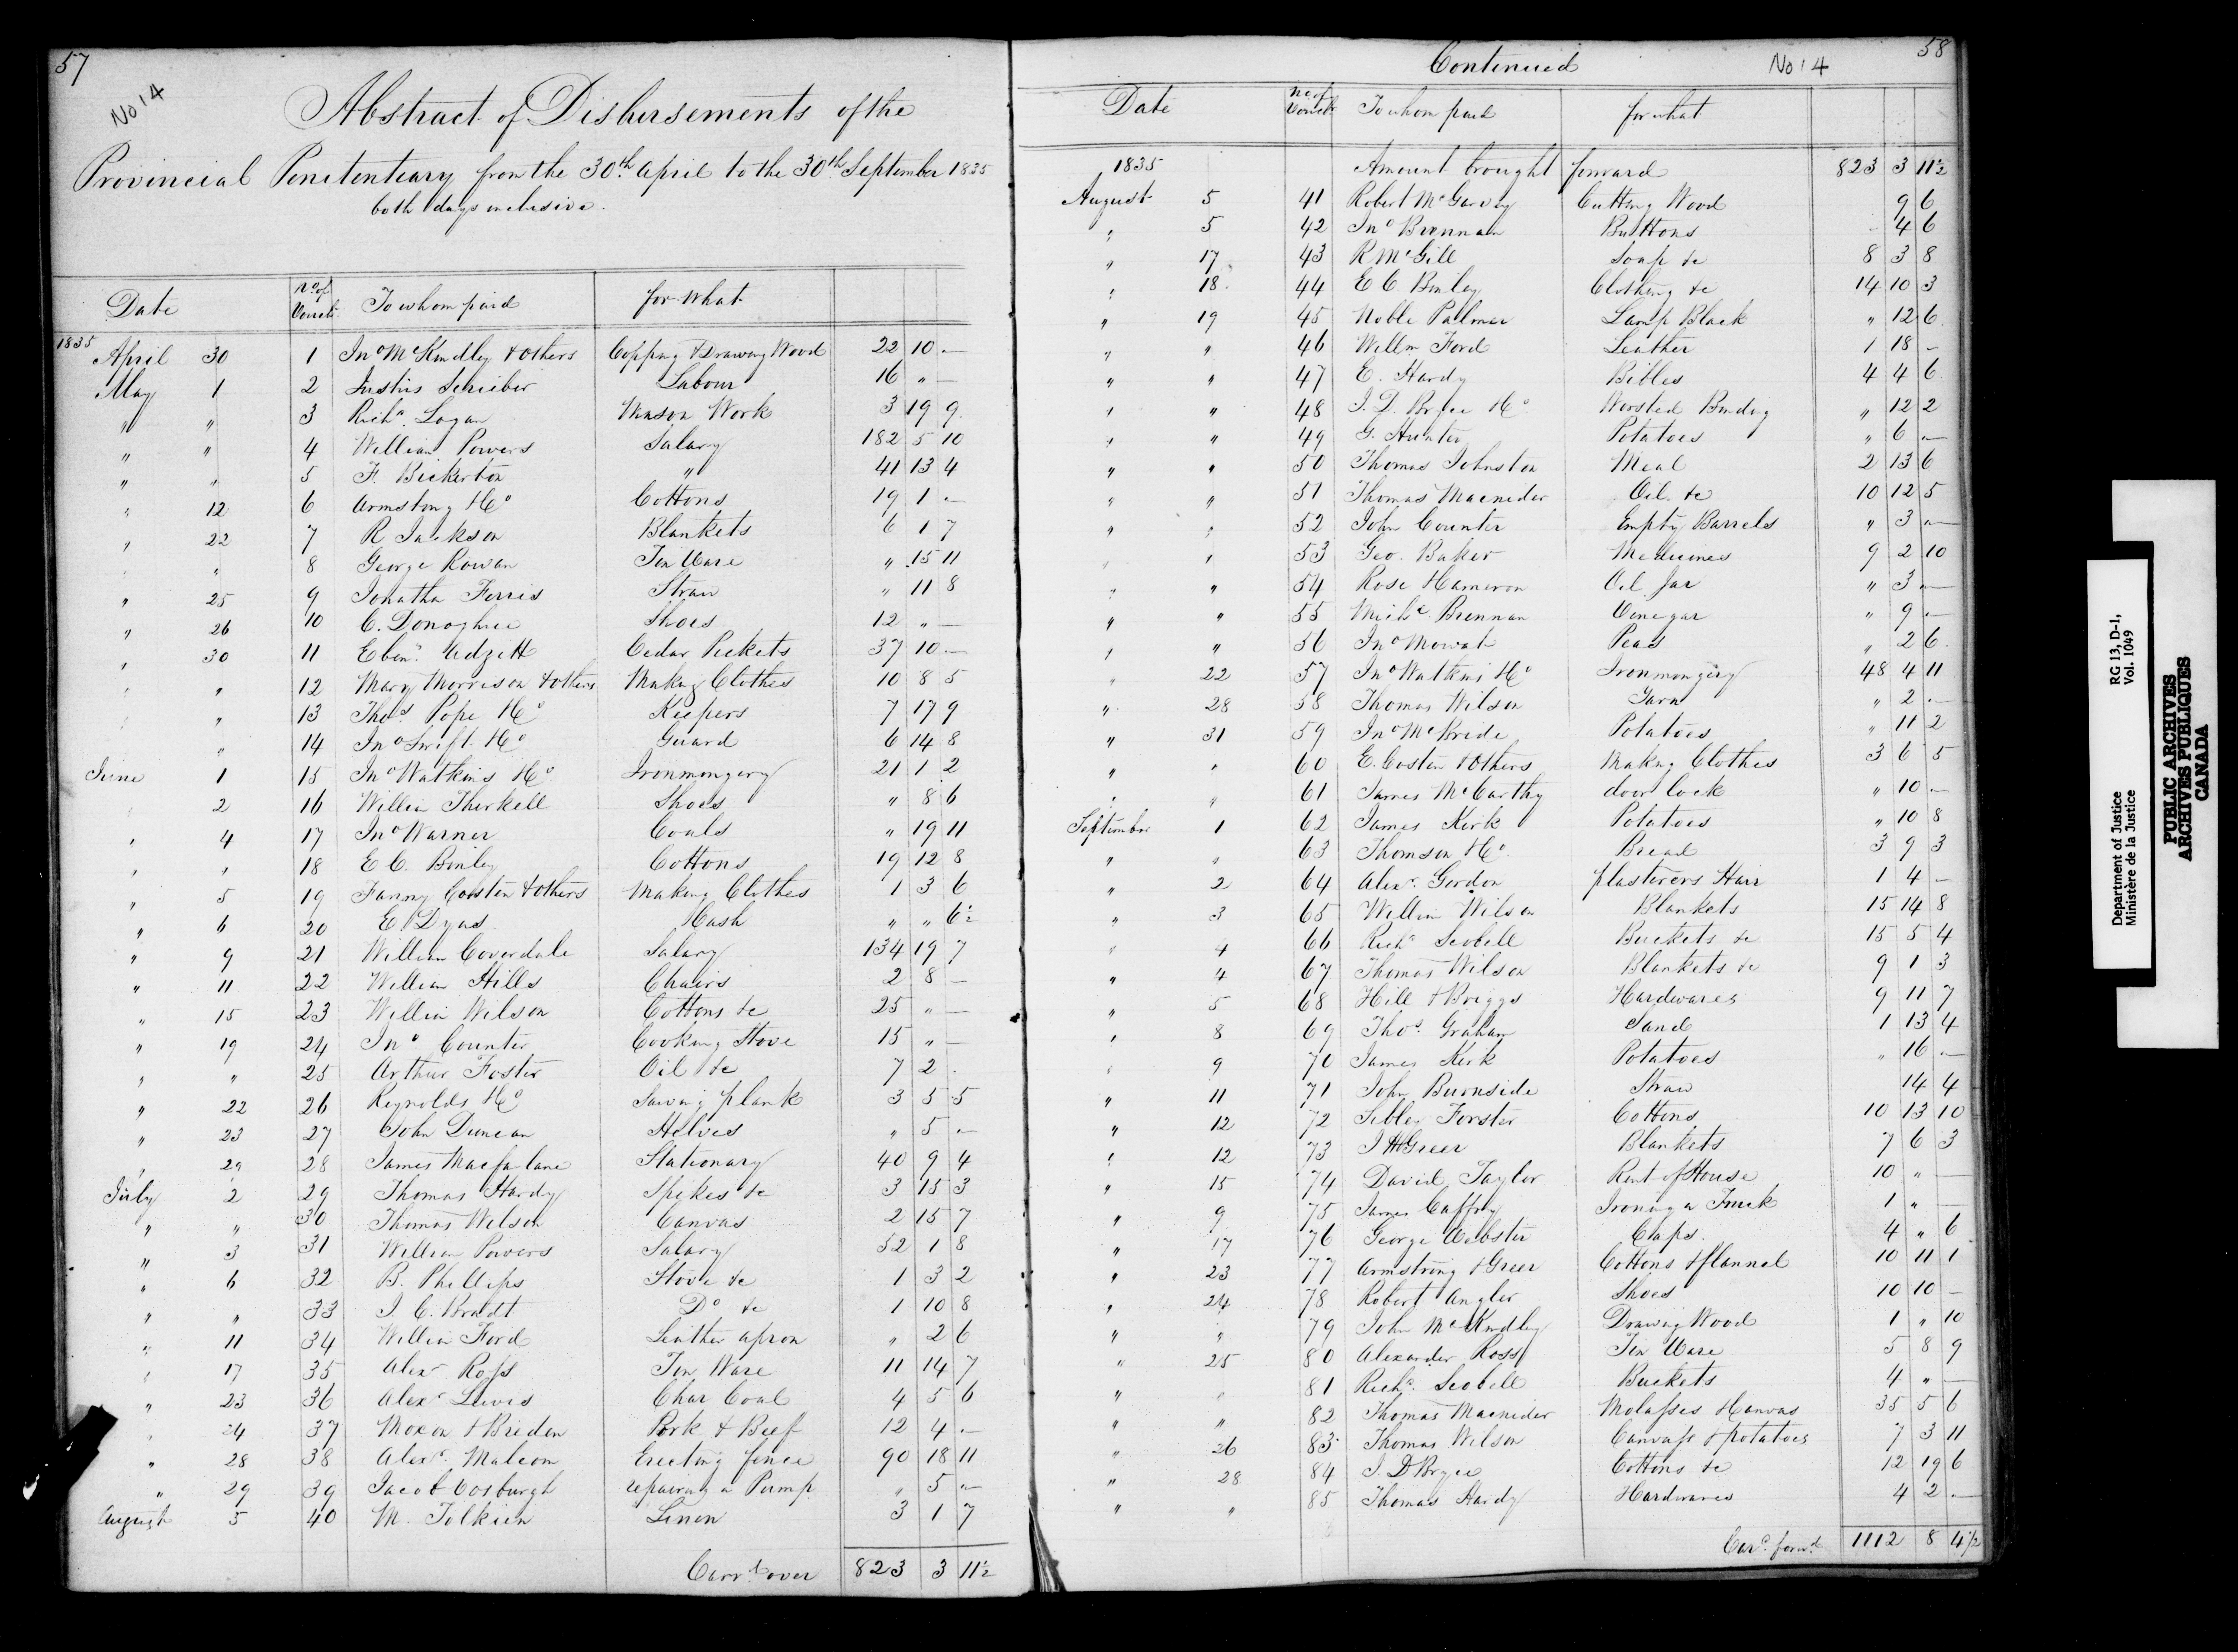 57
No 14
Abstract of Disbursements of the
Provincial Penitentiary from the 30th April to the 30th September 1835
both days inclusive.
Date No of Vouch. To whom paid for what
1835 April 30 1 Jno McKindley & others Copping & Drawing Wood 22 10 —
May 1 2 Justus Schieber Labour 16 " —
" " 3 Richd Logan Mason Work 3 19 9
" " 4 William Powers Salary 182 5 10
" " 5 F. Bickerton " 41 13 4
" 12 6 Armstong & Co Cottons 19 1 —
" 22 7 R Jackson Blankets 6 1 7
" " 8 George Rowan Tin Ware " 15 11
" 25 9 Jonathn Ferris Straw " 11 8
" 26 10 C. Donoghue Shoes 12 " —
" 30 11 Ebenr Adzett Cedar Pickets 37 10 —
" " 12 Mary Morrison & others Making Clothes 10 8 5
" " 13 Thos Pope & Co Keepers 7 17 9
" " 14 Jno Swift & Co Guard 6 14 8
June 1 15 Jno Watkins & Co Ironmongery 21 1 2
" 2 16 William Therkell Shoes " 8 6
" 4 17 Jno Warner Coals " 19 11
" " 18 E C. Binley Cottons 19 12 8
" 5 19 Fanny Costen & others Making Clothes 1 3 6
" 6 20 E Dyas Hash " " 6½
" 9 21 William Coverdale Salary 134 19 7
" 11 22 William Hills Chairs 2 8 —
" 15 23 William Wilson Cottons &c 25 " —
" 19 24 Jno Counter Cooking Stove 15 " —
" " 25 Arthur Foster Oil &c 7 2
" 22 26 Reynolds & Co Sawing plank 3 5 5
" 23 27 John Duncan Helves " 5 —
" 29 28 James Macfarlane Stationary 40 9 4
July 2 29 Thomas Hardy Spikes &c 3 15 3
" " 30 Thomas Wilson Canvas 2 15 7
" 3 31 William Powers Salary 52 1 8
" 6 32 B. Phillips Stove &c 1 3 2
" " 33 J. C. Brandt Do &c 1 10 8
" 11 34 William Ford Leather apron " 2 6
" 17 35 Alexr Ross Tin Ware 11 14 7
" 23 36 Alexr Lewis Char Coal 4 5 6
" 24 37 Moxon & Bredon Pork & Beef 12 4 —
" 28 38 Alexr Malcom Erecting fence 90 18 11
" 29 39 Jacob Vosburgh repairing a Pump " 5 —
August 5 40 M. Tolkien Linen 3 1 7
Carrd over 823 3 11½
58
Continued No 14
Date No of Vouch. To whom paid for what
1835 Amount brought forward 823 3 11½
August 5 41 Robert McGarvey Cutting Wood 9 6
" 5 42 Jno Brennan Buttons 4 6
" 17 43 R McGill Soap &c 8 3 8
" 18 44 E C Binley Clothing &c 14 10 3
" 19 45 Noble Palmer Lamp Black " 12 6
" " 46 Willm Ford Leather 1 18 —
" " 47 E. Hardy Bibles 4 4 6
" " 48 J. D. Bryce & Co Worsted Binding " 12 2
" " 49 G. Hunter Potatoes " 6 —
" " 50 Thomas Johnston Meal 2 13 6
" " 51 Thomas Macnider Oil &c 10 12 5
" " 52 John Counter Empty Barrels " 3 —
" " 53 Geo. Baker Medicines 9 2 10
" " 54 Rose & Cameron Oil Jar " 3 —
" " 55 Michl Brennan Vinegar " 9 —
" " 56 Jno Mowat Peas " 2 6
" 22 57 Jno Watkins & Co Ironmongery 48 4 11
" 28 58 Thomas Wilson Yarn " 2 —
" 31 59 Jno McBride Potatoes " 11 2
" " 60 E. Costen & Others Making Clothes 3 6 5
" " 61 James McCarthy door lock " 10 —
September 1 62 James Kirk Potatoes " 10 8
" " 63 Thomson & Co Bread 3 9 3
" 2 64 Alexr Gordon plasterers Hair 1 4 —
" 3 65 William Wilson Blankets 15 14 8
" 4 66 Richd Scobell Buckets &c 15 5 4
" 4 67 Thomas Wilson Blankets &c 9 1 3
" 5 68 Hill & Briggs Hardwares 9 11 7
" 8 69 Thos Graham Sand 1 13 4
" 9 70 James Kirk Potatoes " 16 —
" 11 71 John Burnside Straw 14 4
" 12 72 Sibley Forster Cottons 10 13 10
" 12 73 J H Greer Blankets 7 6 3
" 15 74 David Taylor Rent of House 10 " —
" 9 75 James Caffry Ironing a Truck 1 " —
" 17 76 George Webster Caps. 4 " 6
" 23 77 Armstrong & Greer Cottons & flannel 10 11 1
" 24 78 Robert Angler Shoes 10 10 —
" " 79 John McKindley Drawing Wood 1 " 10
" 25 80 Alexander Ross Tin Ware 5 8 9
" " 81 Richd Scobell Buckets 4 " —
" " 82 Thomas Macnider Molasses & Canvas 35 5 6
" 26 83 Thomas Wilson Canvass & potatoes 7 3 11
" 28 84 J. D Bryce Cottons &c 12 19 6
" " 85 Thomas Hardy Hardwares 4 2 —
Card forwd 1112 8 4½
Department of Justice RG 13, D-1,
Ministère de la Justice Vol. 1049
PUBLIC ARCHIVES
ARCHIVES PUBLIQUES
CANADA